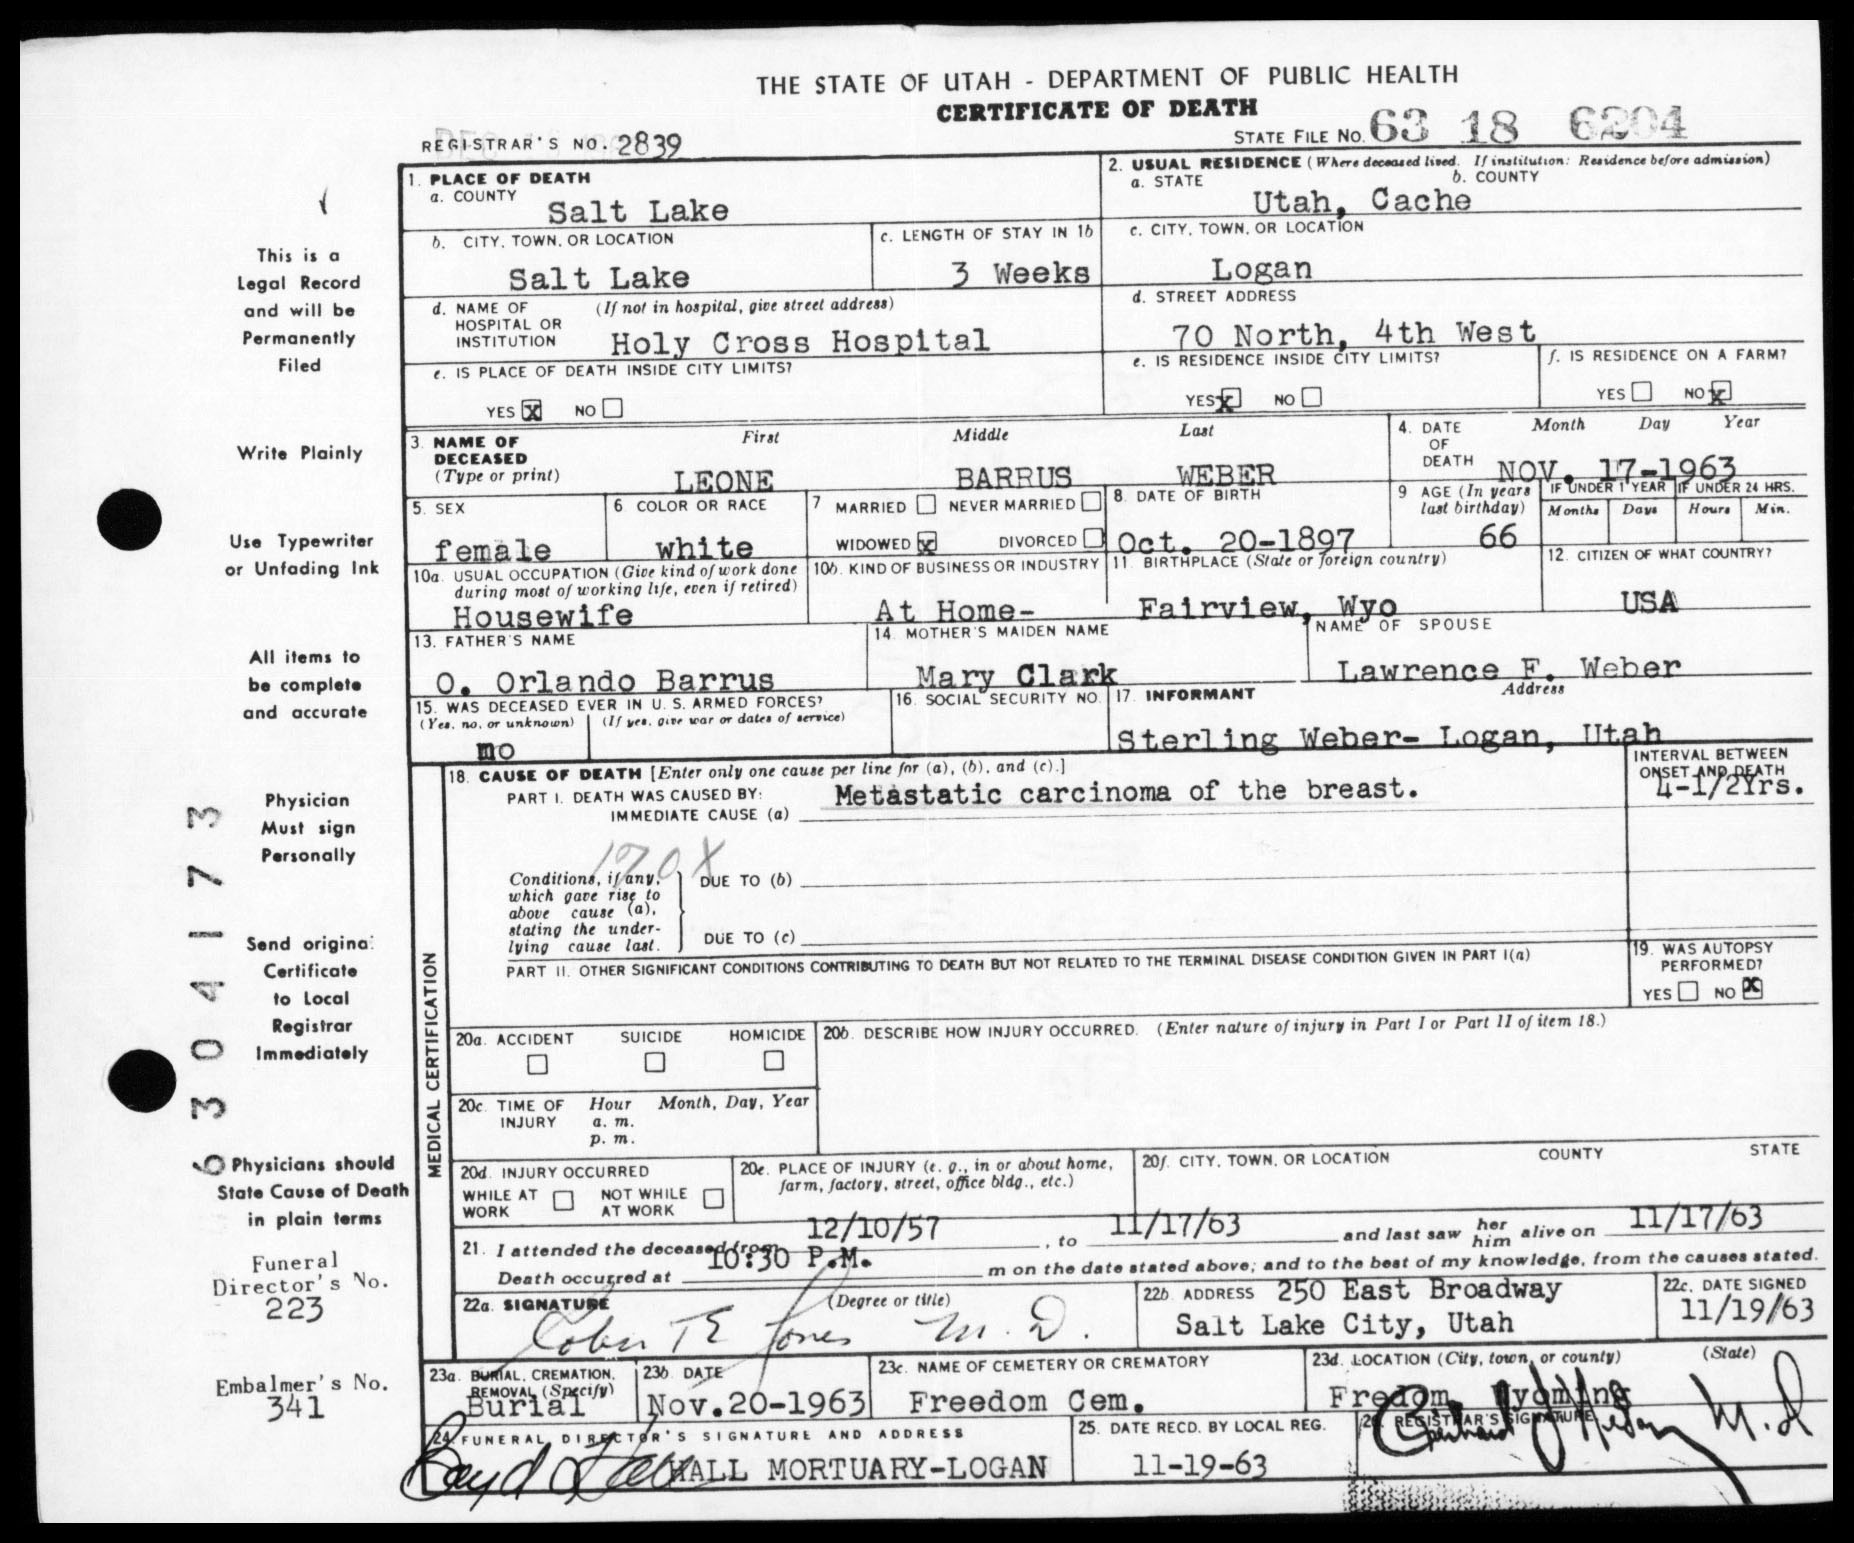 THE STATE OF UTAH - DEPARTMENT OF PUBLIC HEALTH
CERTIFICATE OF DEATH
REGISTRAR'S NO. 2839
STATE FILE NO. 63 18 6204
This is a
Legal Record
and will be
Permanently
Filed
Write Plainly
Use Typewriter
or Unfading Ink
All items to
be complete
and accurate
Physician
Must sign
Personally
Send original
Certificate
to Local
Registrar
Immediately
Physicians should
State Cause of Death
in plain terms
Funeral
Director's No.
223
Embalmer's No.
341
6304173
1. PLACE OF DEATH
a. COUNTY
Salt Lake
2. USUAL RESIDENCE (Where deceased lived. If institution: Residence before admission)
a. STATE b. COUNTY
Utah, Cache
b. CITY, TOWN, OR LOCATION
Salt Lake
c. LENGTH OF STAY IN 1b
3 Weeks
c. CITY, TOWN, OR LOCATION
Logan
d. NAME OF HOSPITAL OR INSTITUTION (If not in hospital, give street address)
Holy Cross Hospital
d. STREET ADDRESS
70 North, 4th West
e. IS PLACE OF DEATH INSIDE CITY LIMITS?
YES X NO
e. IS RESIDENCE INSIDE CITY LIMITS?
YES X NO
f. IS RESIDENCE ON A FARM?
YES NO X
3. NAME OF DECEASED (Type or print)
First Middle Last
LEONE BARRUS WEBER
4. DATE OF DEATH Month Day Year
NOV. 17-1963
5. SEX
female
6 COLOR OR RACE
white
7 MARRIED NEVER MARRIED
WIDOWED X DIVORCED
8. DATE OF BIRTH
Oct. 20-1897
9 AGE (In years last birthday)
66
IF UNDER 1 YEAR IF UNDER 24 HRS.
Months Days Hours Min.
10a. USUAL OCCUPATION (Give kind of work done during most of working life, even if retired)
Housewife
10b. KIND OF BUSINESS OR INDUSTRY
At Home-
11. BIRTHPLACE (State or foreign country)
Fairview, Wyo
12. CITIZEN OF WHAT COUNTRY?
USA
13. FATHER'S NAME
O. Orlando Barrus
14. MOTHER'S MAIDEN NAME
Mary Clark
NAME OF SPOUSE
Lawrence F. Weber
15. WAS DECEASED EVER IN U. S. ARMED FORCES?
(Yes, no, or unknown) (If yes, give war or dates of service)
no
16. SOCIAL SECURITY NO.
17. INFORMANT Address
Sterling Weber- Logan, Utah
MEDICAL CERTIFICATION
18. CAUSE OF DEATH [Enter only one cause per line for (a), (b), and (c).]
INTERVAL BETWEEN ONSET AND DEATH
PART I. DEATH WAS CAUSED BY:
IMMEDIATE CAUSE (a) Metastatic carcinoma of the breast.
4-1/2Yrs.
170X
Conditions, if any, which gave rise to above cause (a), stating the underlying cause last.
DUE TO (b)
DUE TO (c)
PART II. OTHER SIGNIFICANT CONDITIONS CONTRIBUTING TO DEATH BUT NOT RELATED TO THE TERMINAL DISEASE CONDITION GIVEN IN PART I(a)
19. WAS AUTOPSY PERFORMED?
YES NO X
20a. ACCIDENT SUICIDE HOMICIDE
20b. DESCRIBE HOW INJURY OCCURRED. (Enter nature of injury in Part I or Part II of item 18.)
20c. TIME OF INJURY Hour Month, Day, Year
a. m.
p. m.
20d. INJURY OCCURRED
WHILE AT WORK NOT WHILE AT WORK
20e. PLACE OF INJURY (e. g., in or about home, farm, factory, street, office bldg., etc.)
20f. CITY, TOWN, OR LOCATION COUNTY STATE
21. I attended the deceased from 12/10/57, to 11/17/63 and last saw her him alive on 11/17/63
Death occurred at 10:30 P.M. m on the date stated above; and to the best of my knowledge, from the causes stated.
22a. SIGNATURE (Degree or title)
Jones M. D.
22b. ADDRESS 250 East Broadway
Salt Lake City, Utah
22c. DATE SIGNED
11/19/63
23a. BURIAL, CREMATION, REMOVAL (Specify)
Burial
23b. DATE
Nov.20-1963
23c. NAME OF CEMETERY OR CREMATORY
Freedom Cem.
23d. LOCATION (City, town, or county) (State)
Fredom, Wyoming
24. FUNERAL DIRECTOR'S SIGNATURE AND ADDRESS
Boyd HALL MORTUARY-LOGAN
25. DATE RECD. BY LOCAL REG.
11-19-63
26. REGISTRAR'S SIGNATURE
M.D